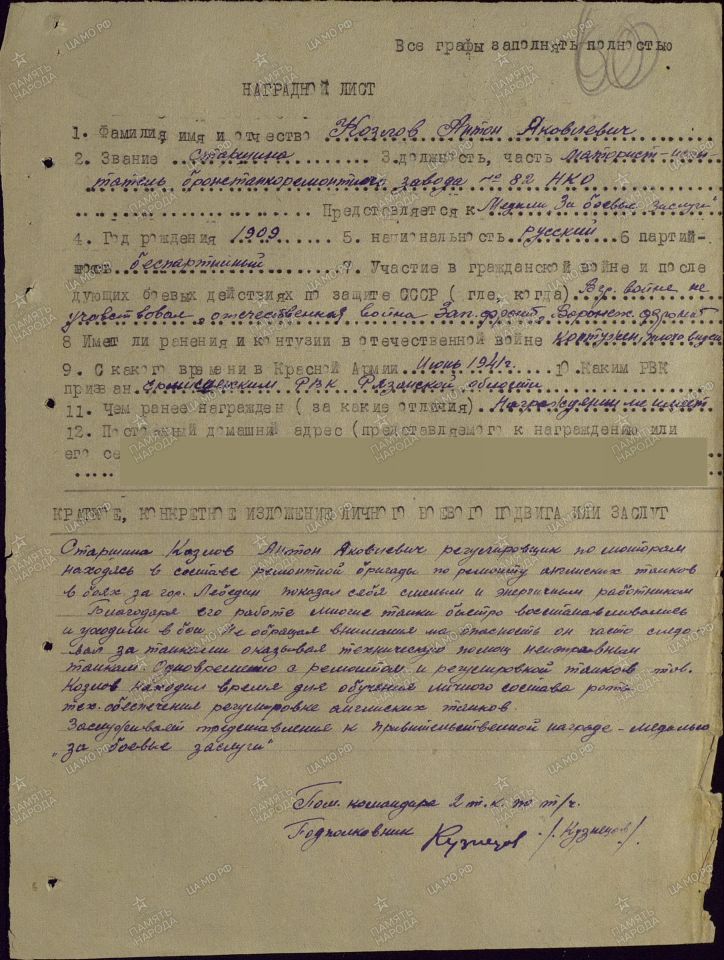 Все графы заполнять полностью
60
НАГРАДНОЙ ЛИСТ
1. Фамилия, имя и отчество Козлов Антон Яковлевич
2. Звание Старшина 3. должность, часть моторист-испы-
татель бронетанкоремонтного завода № 82 НКО
Представляется к Медали "За боевые заслуги"
4. Год рождения 1909 5. национальность русский 6 партий-
ность беспартийный 7. Участие в гражданской войне и после
дующих боевых действиях по защите СССР ( где, когда) В гр. войне не
участвовал, отечественная война Зап. фронт, Воронеж. фронт
8 Имет ли ранения и контузии в отечественной войне
9. С какого времени в Красной Армии Июнь 1941 г. 10. Каким РВК
призван РВК Рязанской области
11. Чем ранее награжден ( за какие отличия) Награждений не имеет
12. Постоянный домашний адрес (представляемого к награждению или
его се
КРАТКОЕ, КОНКРЕТНОЕ ИЗЛОЖЕНИЕ ЛИЧНОГО БОЕВОГО ПОДВИГА ИЛИ ЗАСЛУГ
Старшина Козлов Антон Яковлевич регулировщик по моторам
находясь в составе ремонтной бригады по ремонту английских танков
в боях за гор. Лебедин показал себя смелым и энергичным работником
Благодаря его работе многие танки быстро восстанавливались
и уходили в бой. Не обращая внимания на опасность он часто следо
вал за танками оказывая техническую помощ неисправным
танкам. Одновременно с ремонтом и регулировкой танков тов.
Козлов находил время для обучения личного состава роты
тех. обеспечения регулировке английских танков.
Заслуживает представления к правительственной награде - медалью
"за боевые заслуги"
Пом. командира 2 т.к. по т/ч.
Подполковник Кузнецов /. Кузнецов/
ПАМЯТЬ НАРОДА
ЦАМО.РФ